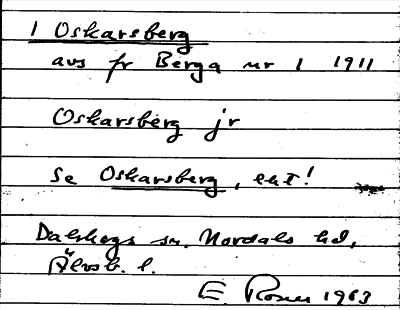 1 Oskarsberg
avs fr Berga nr 1 1911
Oskarsberg jr
Se Oskarsberg, ekt!
Dalskogs sn. Nordals hd,
Älvsb. l.
E. Rosen 1963